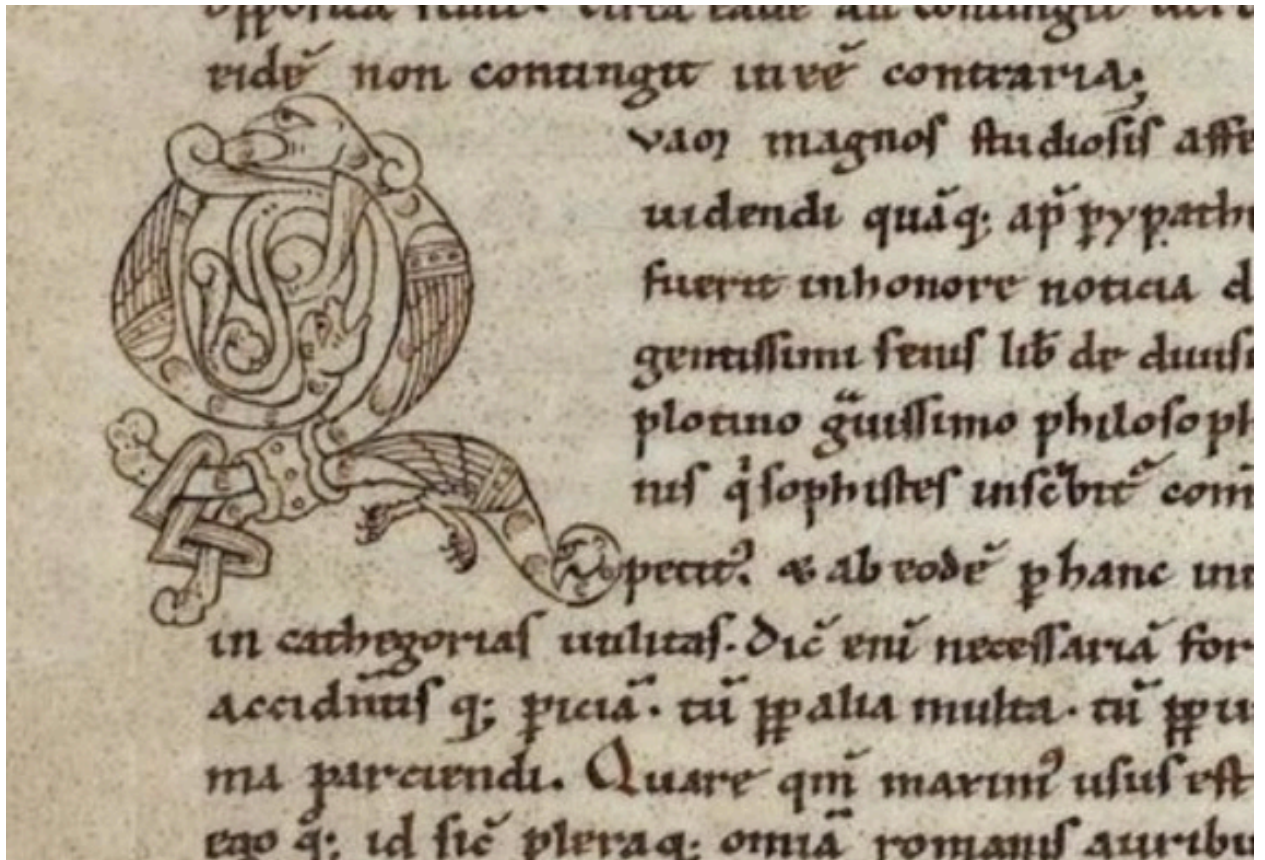 eidē non contingit in eē contraria;
Qvaꝫ magnos studiosis affe
uidendi quāq; ap̄ pypathe
fuerit inhonore noticia d
gentissimi senis lib̄ de diuis
plotino g̃uissimo philosoph
nis q̇ sophistes inscb̄it᷑ com
petit᷒. & ab eodē ꝑ hanc int
in cathegorias utilitas. Dic̄ enī necessariā for
accidn̄tis q; ꝑiciā. tū ꝓp alia multa. tū ꝓp u
ma parciendi. Quare qm̄ maxim᷒ usus est
ego q; id sic̄ pleraq; omiā romanis auribu